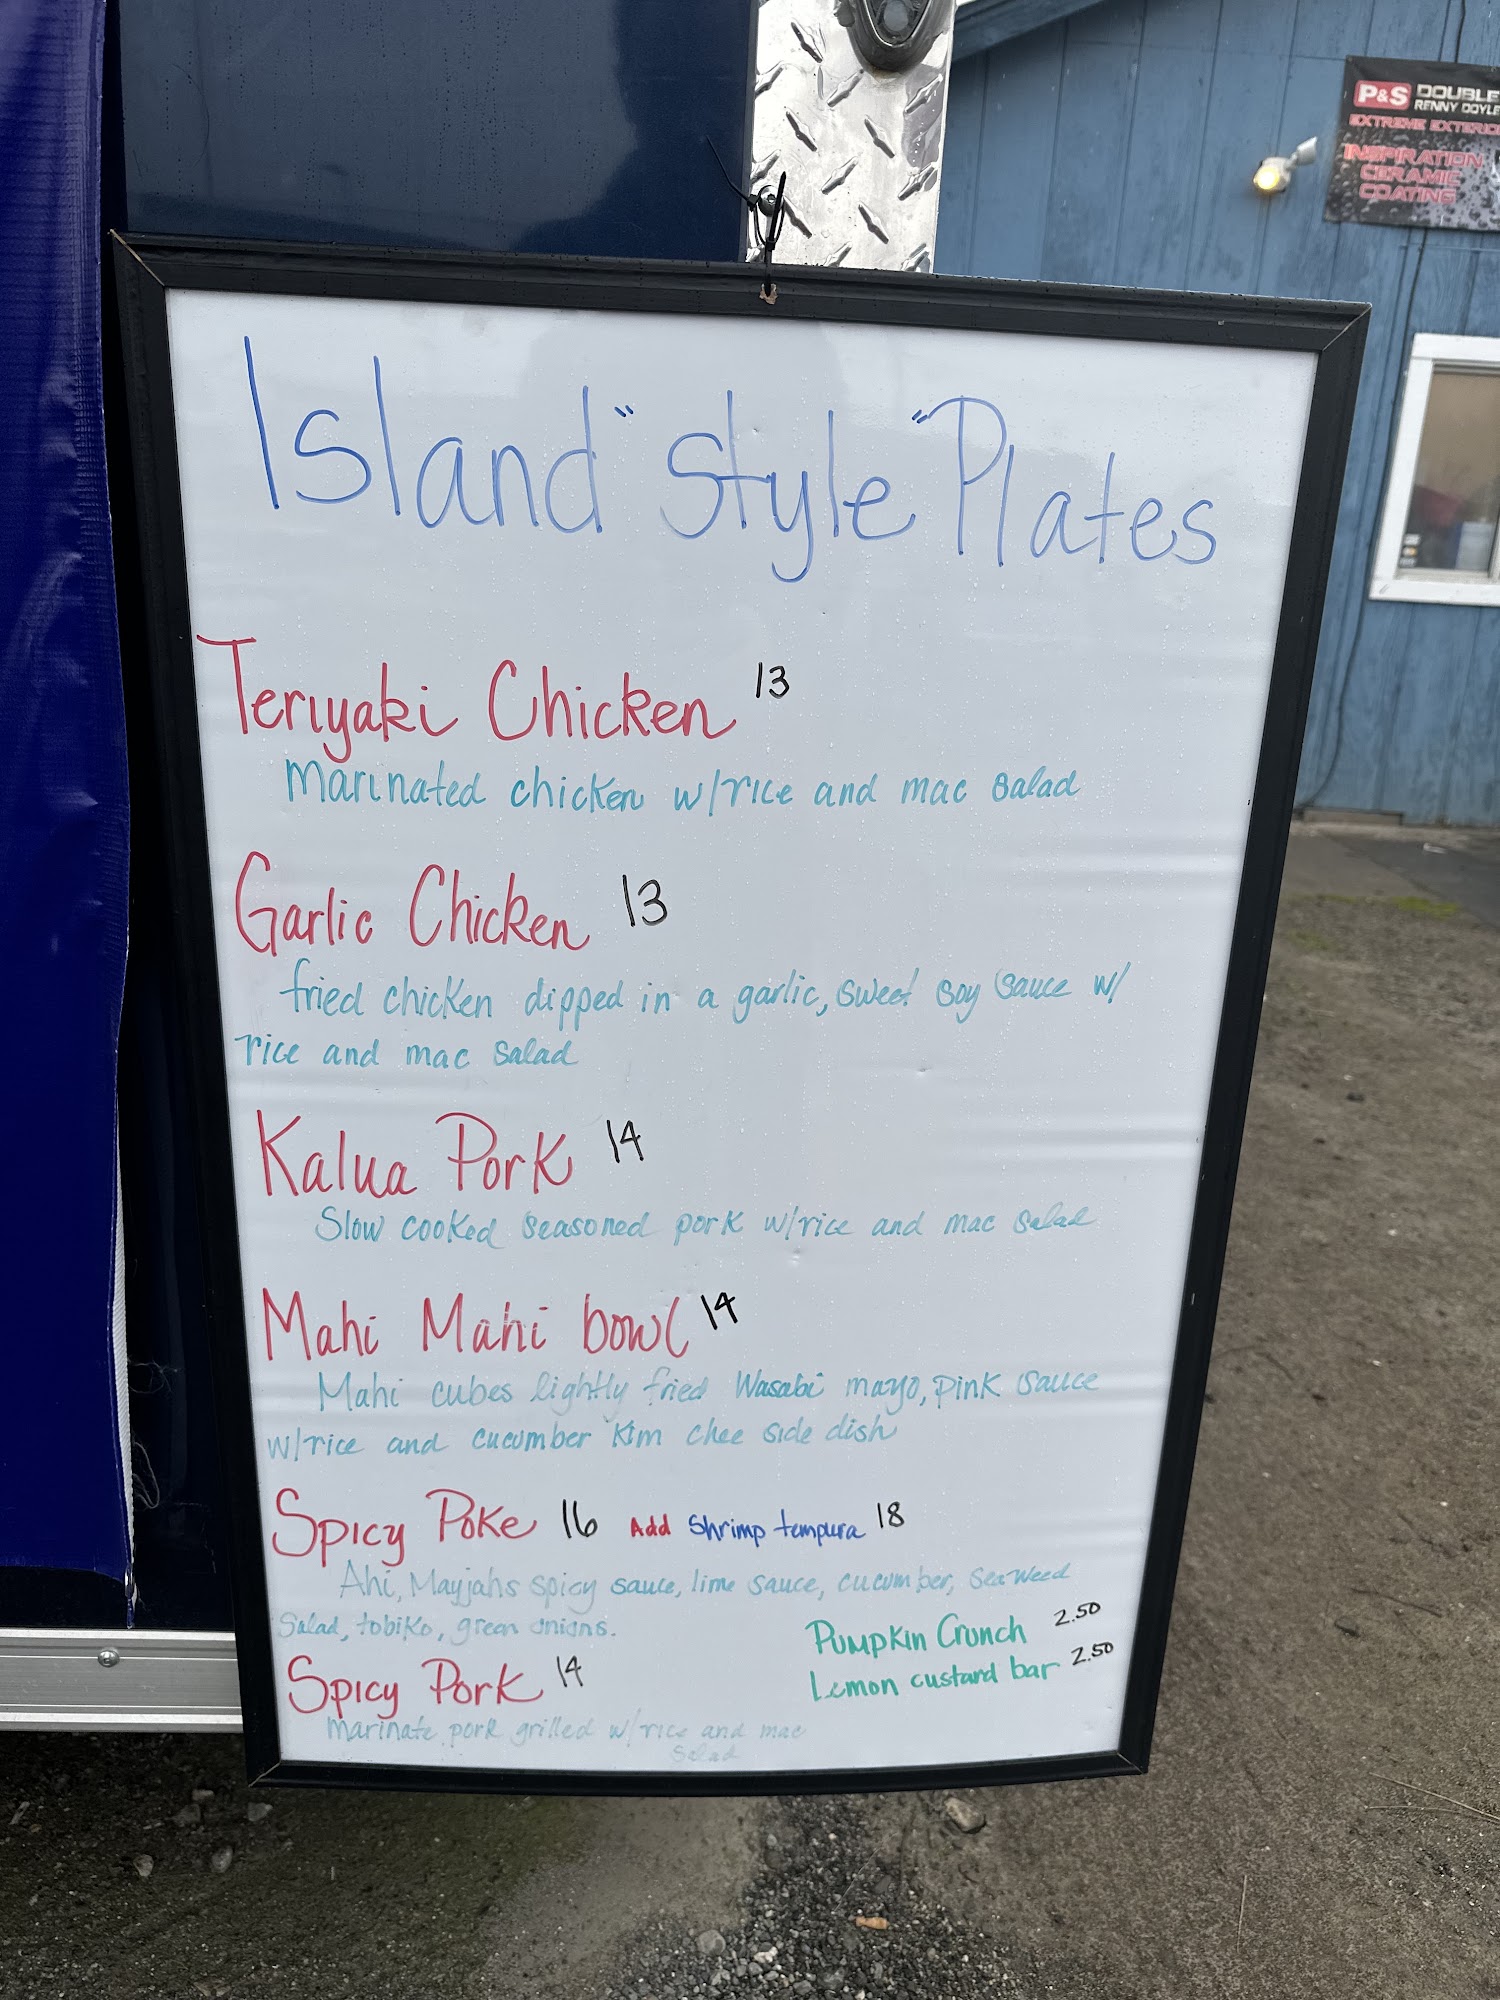 P&S DOUBLE
RENNY DOYLE
EXTREME EXTERIO
INSPIRATION
CERAMIC
COATING
Island "Style" Plates
Teriyaki Chicken 13
Marinated chicken w/rice and mac salad
Garlic Chicken 13
fried chicken dipped in a garlic, sweet soy sauce w/
rice and mac salad
Kalua Pork 14
Slow cooked seasoned pork w/rice and mac salad
Mahi Mahi bowl 14
Mahi cubes lightly fried Wasabi mayo, pink sauce
w/rice and cucumber Kim chee side dish
Spicy Poke 16 Add Shrimp tempura 18
Ahi, Mayjahs spicy sauce, lime sauce, cucumber, seaweed
Salad, tobiko, green onions.
Pumpkin Crunch 2.50
Lemon custard bar 2.50
Spicy Pork 14
marinate pork grilled w/rice and mac
salad